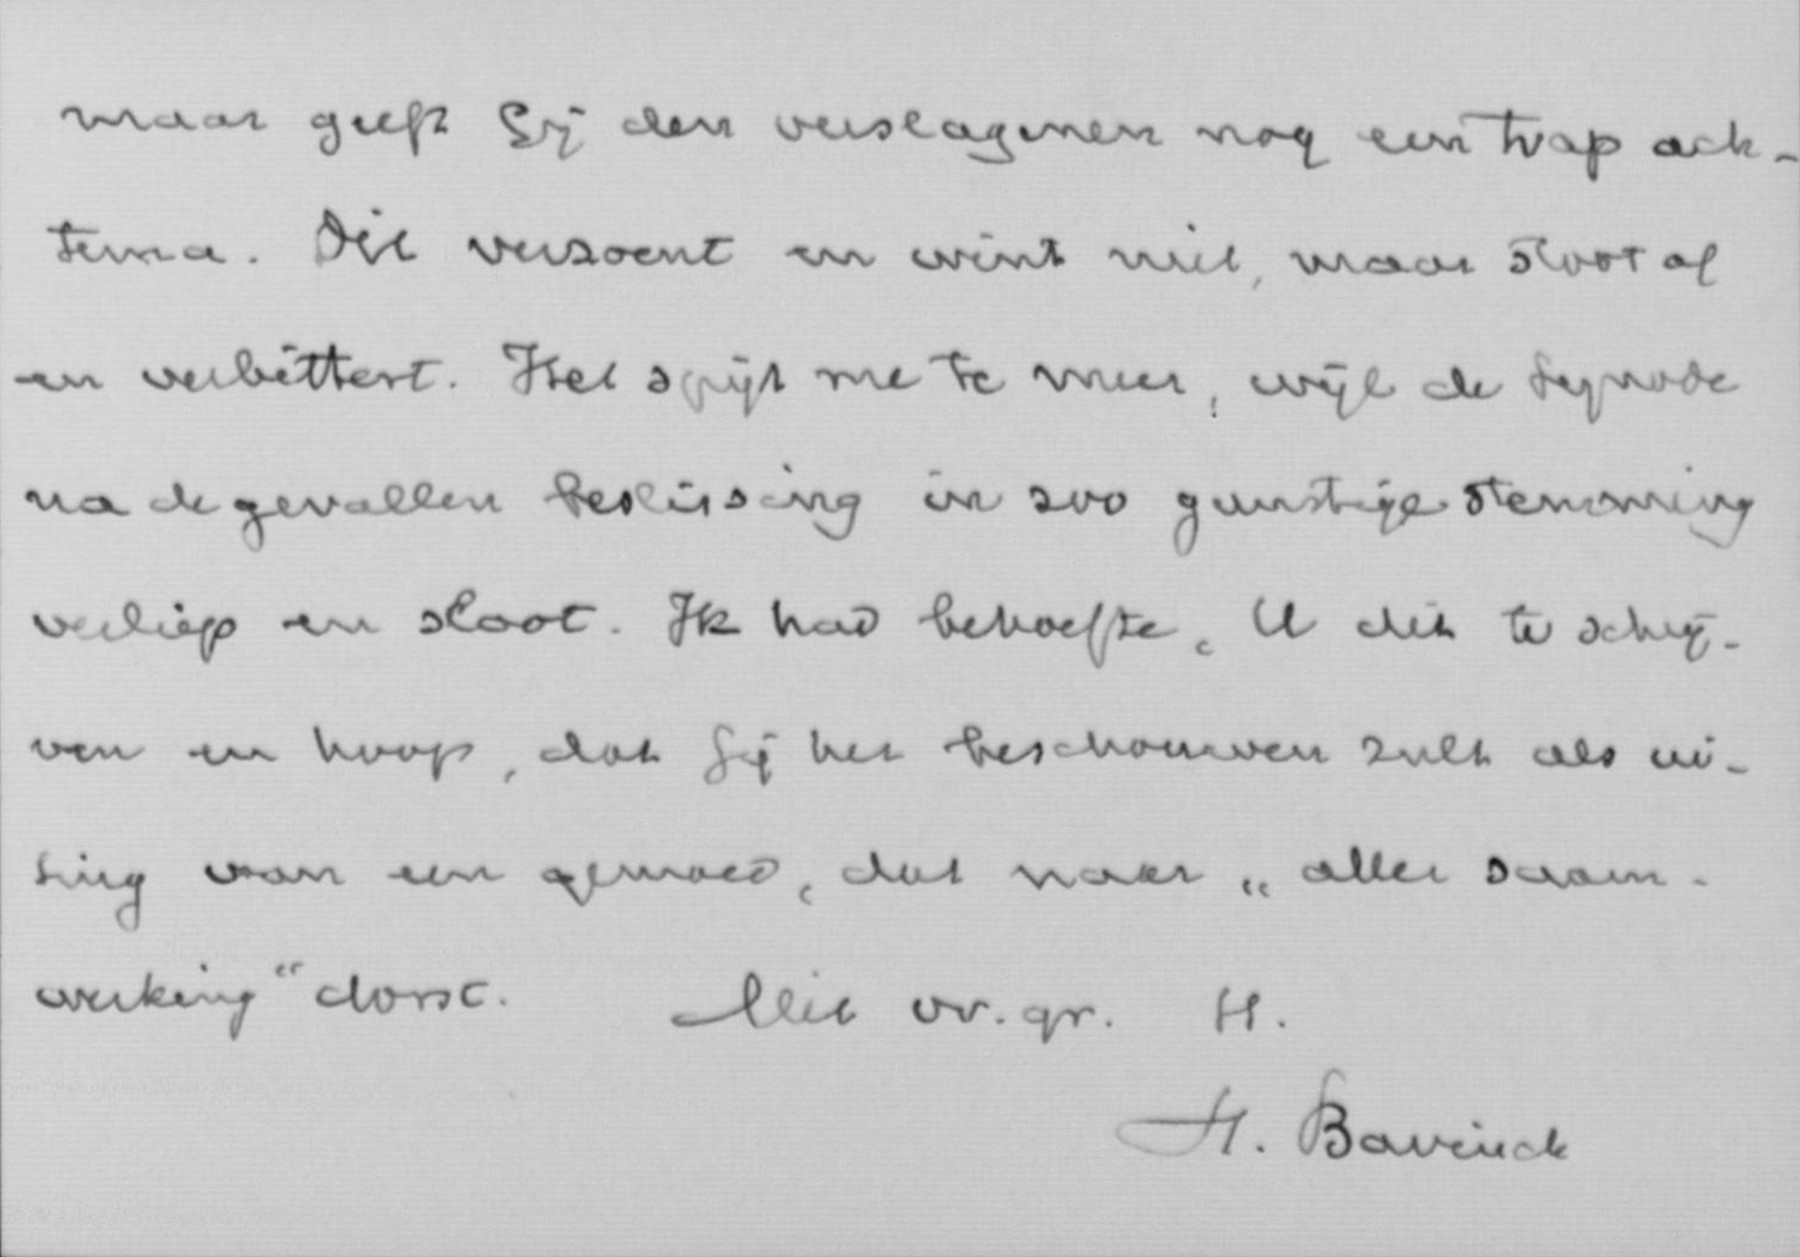 maar geeft Gij den verslagenen nog een trap ach-
terna. Dit verzoent en wint niet, maar stoot af
en verbittert. Het spijt me te meer, wijl de Synode
na de gevallen beslissing in zoo gunstige stemming
verliep en sloot. Ik had behoefte, U dit te schrij-
ven en hoop, dat Gij het beschouwen zult als ui-
ting van een gemoed, dat naar „aller saam-
werking“ dorst. Met vr. gr. H.
H. Bavinck